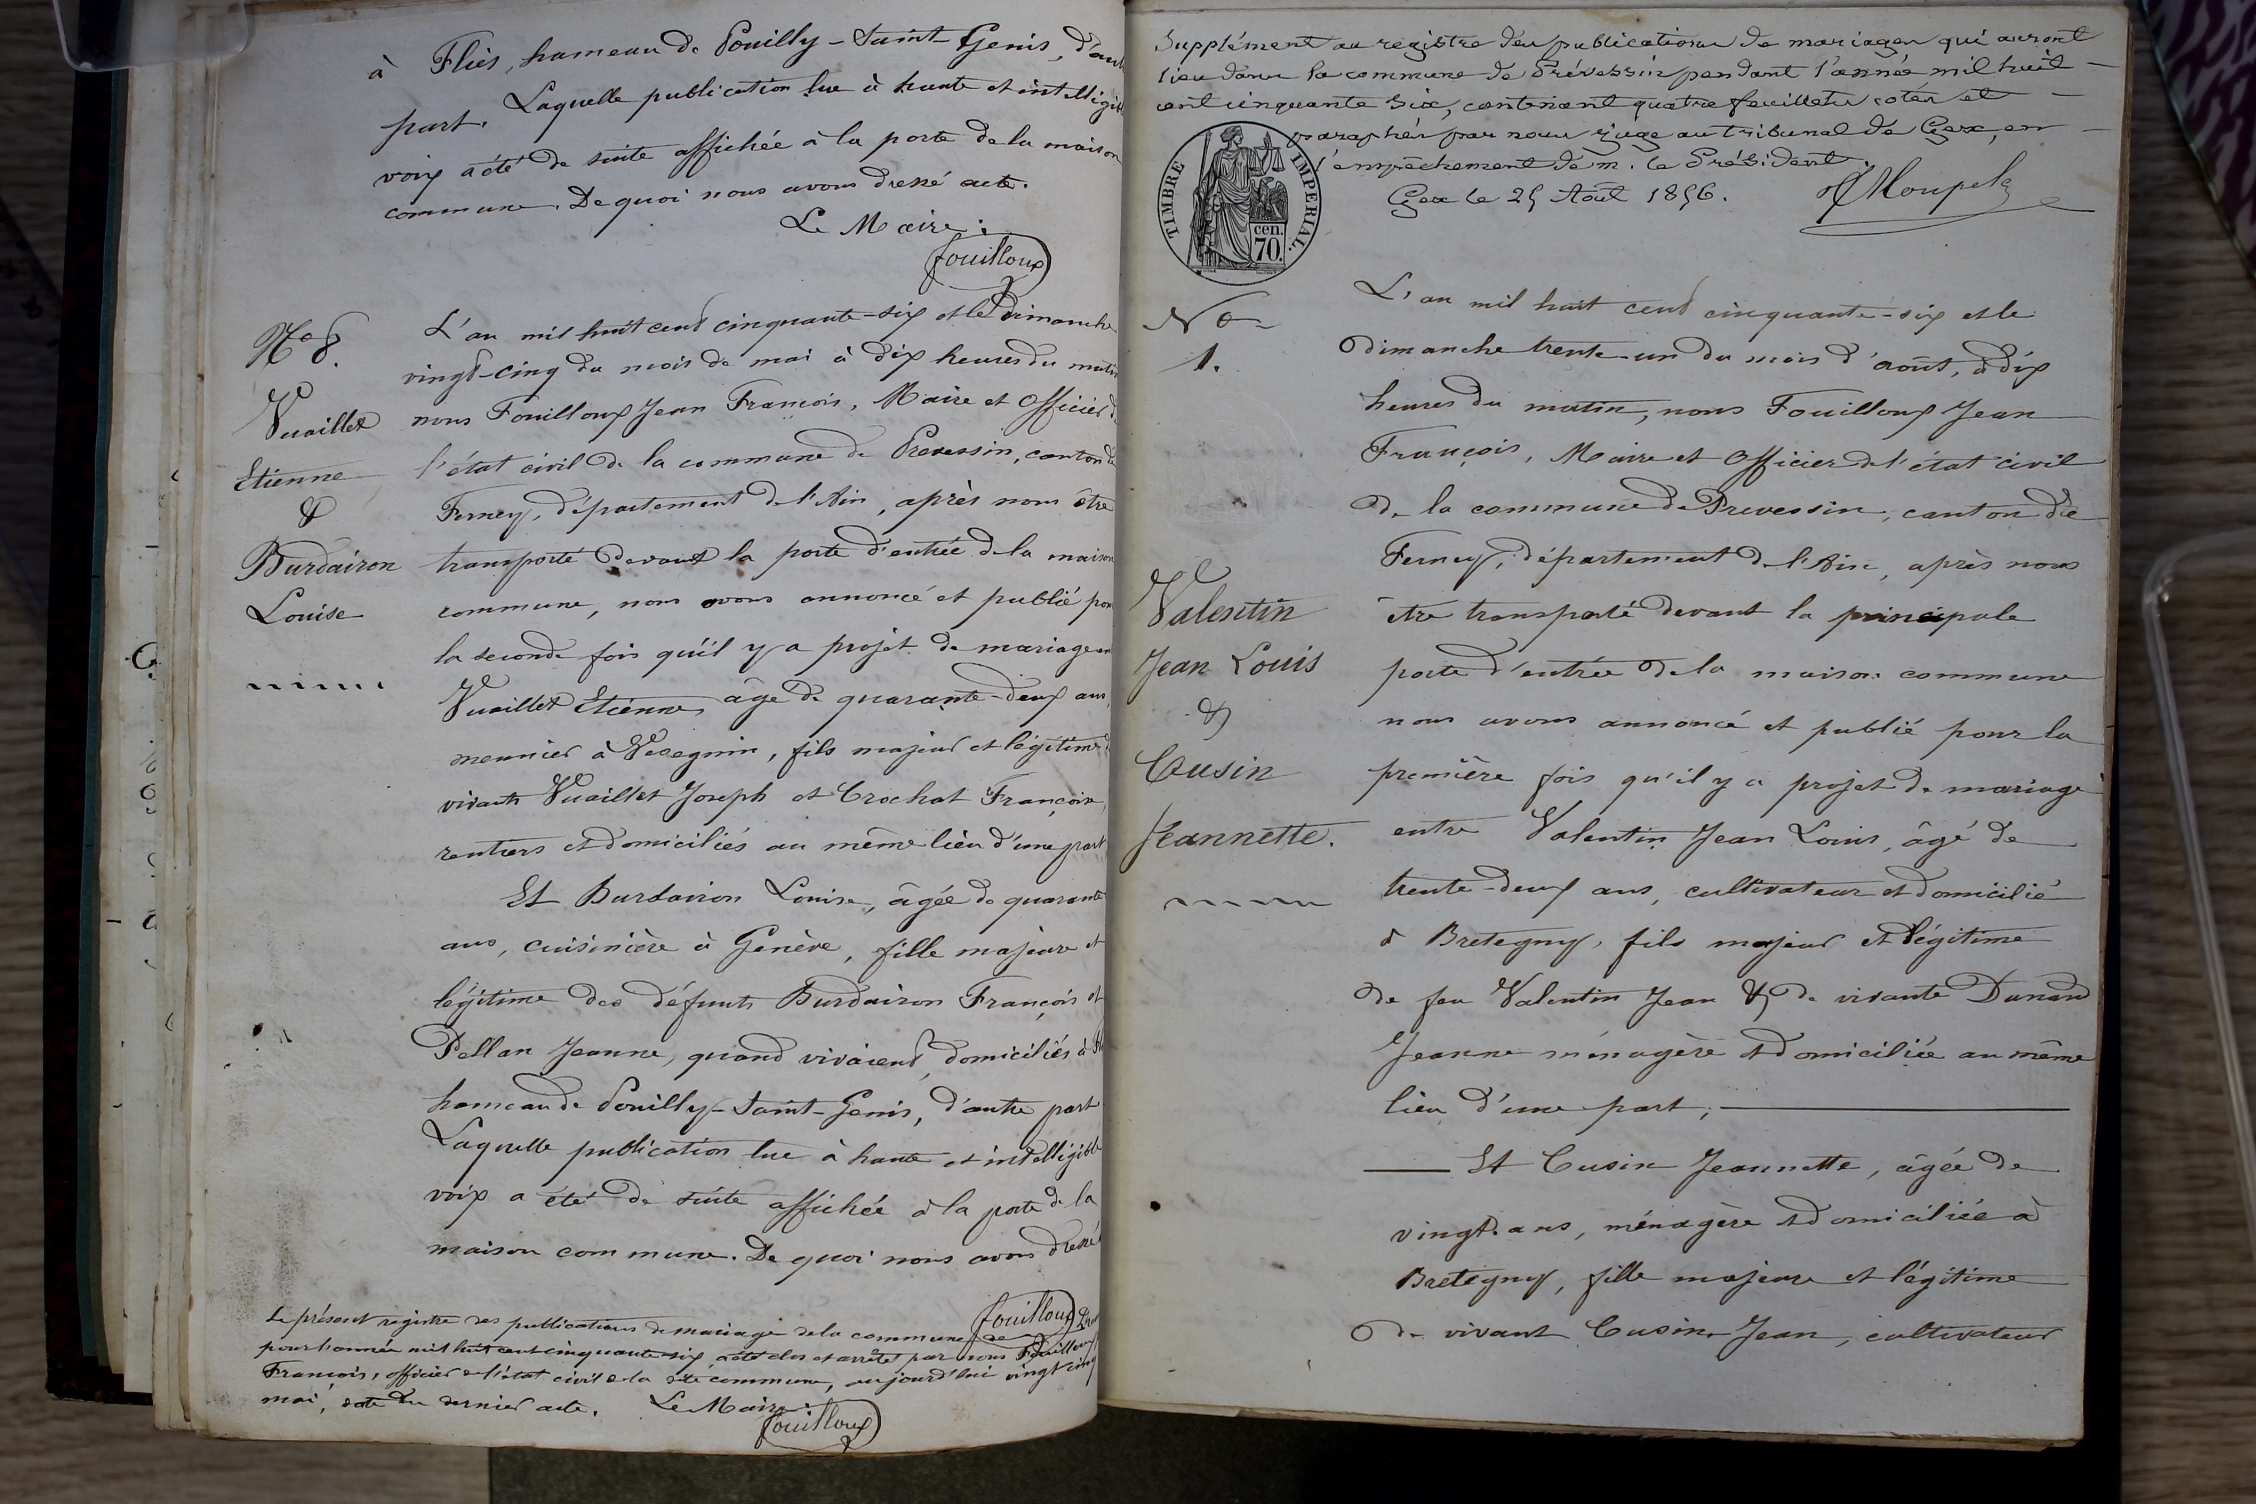 à Fliès, hameau de Pouilly-Saint Genis, d'autre
part. Laquelle publication lue à haute et intelligible
voix a été de suite affichée à la porte de la maison
commune. De quoi nous avons dressé acte.
Le Maire :
Fouilloux
No 8.
Vuaillet
Etienne
&
Burdairon
Louise
L'an mil huit cent cinquante-six et le dimanche
vingt-cinq du mois de mai à dix heures du matin
nous Fouilloux Jean François, Maire et Officier de
l'état civil de la commune de Prevessin, canton de
Ferney, département de l'Ain, après nous être
transporté devant la porte d'entrée de la maison
commune, nous avons annoncé et publié pour
la seconde fois qu'il y a projet de mariage en
Vuaillet Etienne, âgé de quarante-deux ans,
meunier à Vesegnin, fils majeur et légitime d
vivants Vuaillet Joseph et Crochat Françoise,
rentiers et domiciliés au même lieu d'une part
Et Burdairon Louise, âgée de quarante
ans, cuisinière à Genève, fille majeure et
légitime des défunts Burdairon François et
Pellan Jeanne, quand vivaient domiciliés à
hameau de Pouilly-Saint-Genis, d'autre part
Laquelle publication lue à haute et intelligible
voix a été de suite affichée à la porte de la
maison commune. De quoi nous avons dressé
Fouilloux
Le présent registre des publications de mariage de la commune de
pour l'année mil huit cent cinquante-six, a été clos et arrêté par nous Fouilloux
François, officier de l'état civil de la dite commune, aujourd'hui vingt cinq
mai, date du dernier acte. Le Maire :
Fouilloux
Supplément au registre des publications de mariages qui auront
lieu dans la commune de Prévessin pendant l'année mil huit
cent cinquante six, contenant quatre feuillets cotés et
paraphés par nous juge au tribunal de Gex, en
l'empêchement de m. le Président.
Gex le 25 Août 1856.
TIMBRE IMPERIAL.
cen.
70.
No
1.
Valentin
Jean Louis
&
Cusin
Jeannette.
L'an mil huit cent cinquante-six et le
dimanche trente-un du mois d'août, à dix
heures du matin, nous Fouilloux Jean
François, Maire et Officier de l'état civil
de la commune de Prevessin, canton de
Ferney, département de l'Ain, après nous
être transporté devant la principale
porte d'entrée de la maison commune
nous avons annoncé et publié pour la
première fois qu'il y a projet de mariage
entre Valentin Jean Louis, âgé de
trente-deux ans, cultivateur et domicilié
à Bretegny, fils majeur et légitime
de feu Valentin Jean & de vivante Dunand
Jeanne ménagère et domiciliée au même
lieu d'une part,
Et Cusin Jeannette, âgée de
vingt ans, ménagère et domiciliée à
Bretegny, fille majeure et légitime
de vivant Cusin Jean, cultivateur